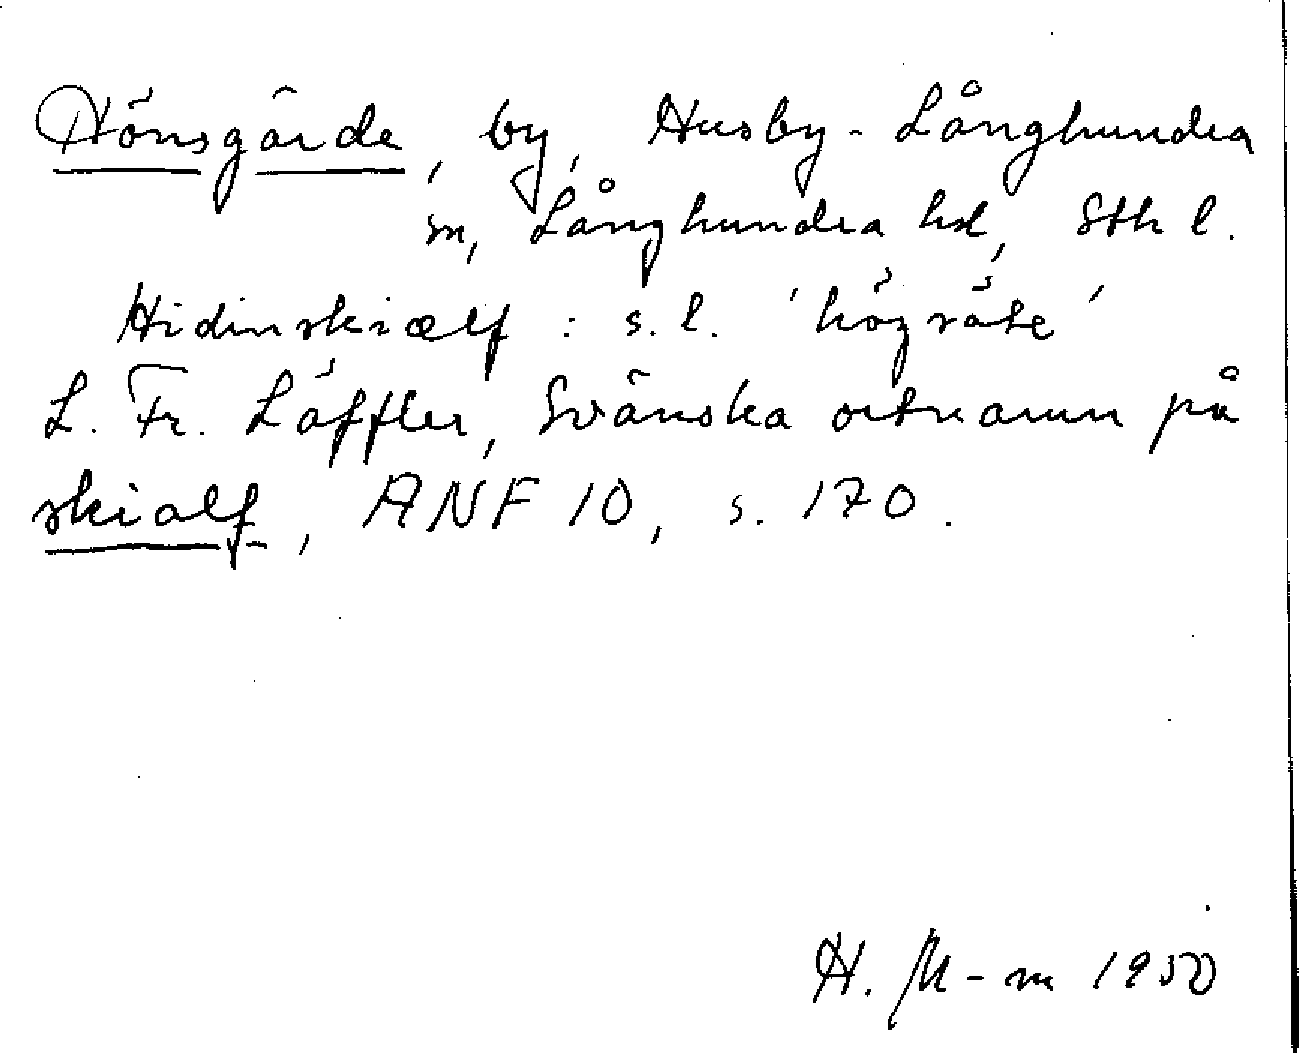 Hönsgärde, by, Husby-Långhundra
sn, Långhundra hd, Sth l.
Hidinskiælf : s. l. 'högsäte'
L. Fr. Läffler, Svänska ortnamn på
skialf, ANF 10, s. 170.
H. M-m 1950